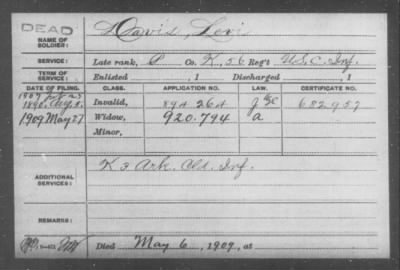 DEAD
NAME OF SOLDIER: Davis, Levi
SERVICE: Late rank, P Co. K, 56 Reg't U.S.C. Inf.
TERM OF SERVICE: Enlisted , 1 Discharged , 1
DATE OF FILING. CLASS. APPLICATION NO. LAW. CERTIFICATE NO.
1890, Aug. 8. Invalid, 894264 682957
1909 May 27 Widow, 920.794 a
Minor,
ADDITIONAL SERVICES: K 3 Ark. Cld. Inf.
REMARKS:
Died May 6, 1909, at